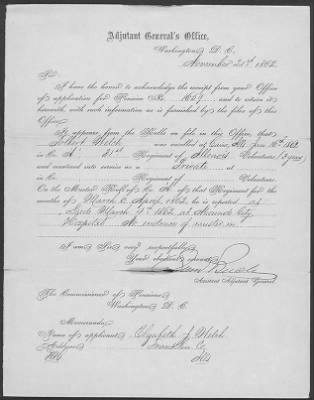 Adjutant General's Office,
Washington, D. C.
November 21st, 1862.
Sir:
I have the honor to acknowledge the receipt from your Office
of application for Pension No. 1029, and to return it
herewith, with such information as is furnished by the files of this
Office.
It appears from the Rolls on file in this Office, that
Welch was enrolled at Cairo, Ills
in Co. A, 31st Regiment of Illinois Volunteers, 3 years
and mustered into service as a Private at
in Co. Regiment of Volunteers.
On the Muster Roll of Co. A of that Regiment, for the
months of March & April, 1862, he is reported
Died March 1862, at Mound City
Hospital. No evidence of muster in.
I am, Sir, very respectfully,
Your obedient servant,
Assistant Adjutant General.
The Commissioner of Pensions,
Washington, D. C.
Memoranda.
Name of applicant, Elizabeth J. Welch
Address, Franklin Co
Ills